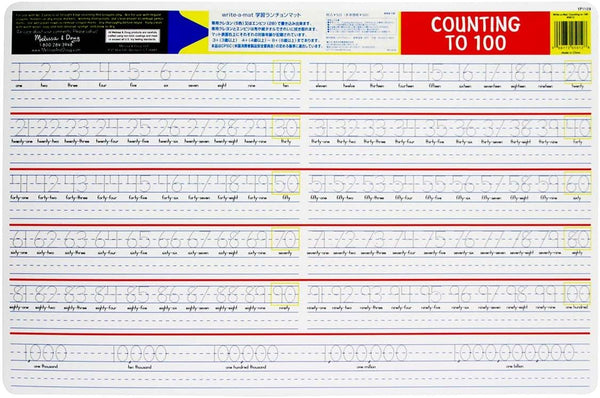 Melissa & Doug
1-800-284-3948
write-a-mat 学習ランチョンマット
COUNTING
TO 100
1 2 3 4 5 6 7 8 9 10
one two three four five six seven eight nine ten
11 12 13 14 15 16 17 18 19 20
eleven twelve thirteen fourteen fifteen sixteen seventeen eighteen nineteen twenty
21 22 23 24 25 26 27 28 29 30
twenty-one twenty-two twenty-three twenty-four twenty-five twenty-six twenty-seven twenty-eight twenty-nine thirty
31 32 33 34 35 36 37 38 39 40
thirty-one thirty-two thirty-three thirty-four thirty-five thirty-six thirty-seven thirty-eight thirty-nine forty
41 42 43 44 45 46 47 48 49 50
forty-one forty-two forty-three forty-four forty-five forty-six forty-seven forty-eight forty-nine fifty
51 52 53 54 55 56 57 58 59 60
fifty-one fifty-two fifty-three fifty-four fifty-five fifty-six fifty-seven fifty-eight fifty-nine sixty
61 62 63 64 65 66 67 68 69 70
sixty-one sixty-two sixty-three sixty-four sixty-five sixty-six sixty-seven sixty-eight sixty-nine seventy
71 72 73 74 75 76 77 78 79 80
seventy-one seventy-two seventy-three seventy-four seventy-five seventy-six seventy-seven seventy-eight seventy-nine eighty
81 82 83 84 85 86 87 88 89 90
eighty-one eighty-two eighty-three eighty-four eighty-five eighty-six eighty-seven eighty-eight eighty-nine ninety
91 92 93 94 95 96 97 98 99 100
ninety-one ninety-two ninety-three ninety-four ninety-five ninety-six ninety-seven ninety-eight ninety-nine one hundred
1,000 10,000 100,000 1,000,000 1,000,000,000
one thousand ten thousand one hundred thousand one million one billion